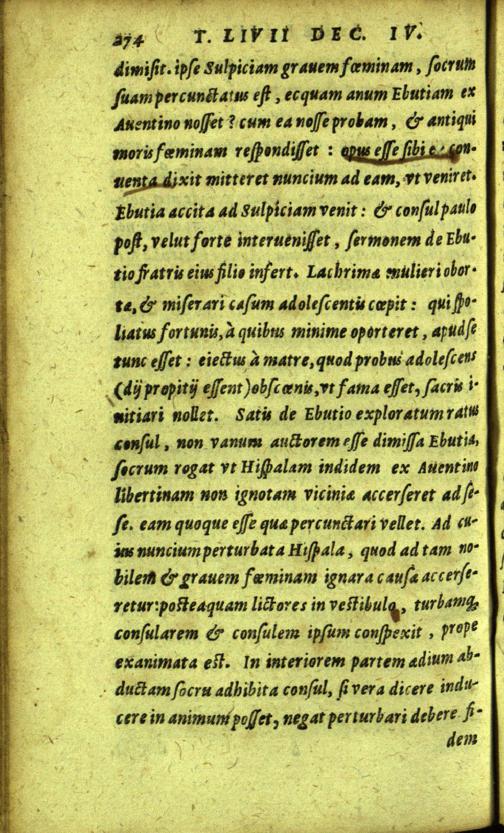 274 T. LIVII DEC. IV.
dimisit. ipse Sulpiciam grauem fœminam, socrum
suam percunctatus est, ecquam anum Ebutiam ex
Auentino nosset? cum ea nosse probam, & antiqui
moris fœminam respondisset: opus esse sibi e con-
uenta dixit mitteret nuncium ad eam, vt veniret.
Ebutia accita ad Sulpiciam venit: & consul paulo
post, velut forte interuenisset, sermonem de Ebu-
tio fratris eius filio infert. Lachrimæ mulieri obor-
tæ, & miserari casum adolescentis cœpit: qui spo-
liatus fortunis, à quibus minime oporteret, apud se
tunc esset: eiectus à matre, quod probus adolescens
(dij propitij essent) obscœnis, vt fama esset, sacris i-
nitiari nollet. Satis de Ebutio exploratum ratus
consul, non vanum auctorem esse dimissa Ebutia,
socrum rogat vt Hispalam indidem ex Auentino
libertinam non ignotam viciniæ accerseret ad se-
se. eam quoque esse quæ percunctari vellet. Ad cu-
ius nuncium perturbata Hispala, quod ad tam no-
bilem & grauem fœminam ignara causæ accerse-
retur: posteaquam lictores in vestibulo, turbamq;
consularem & consulem ipsum conspexit, prope
exanimata est. In interiorem partem ædium ab-
ductam socru adhibita consul, si vera dicere indu-
cere in animum posset, negat perturbari debere. fi-
dem